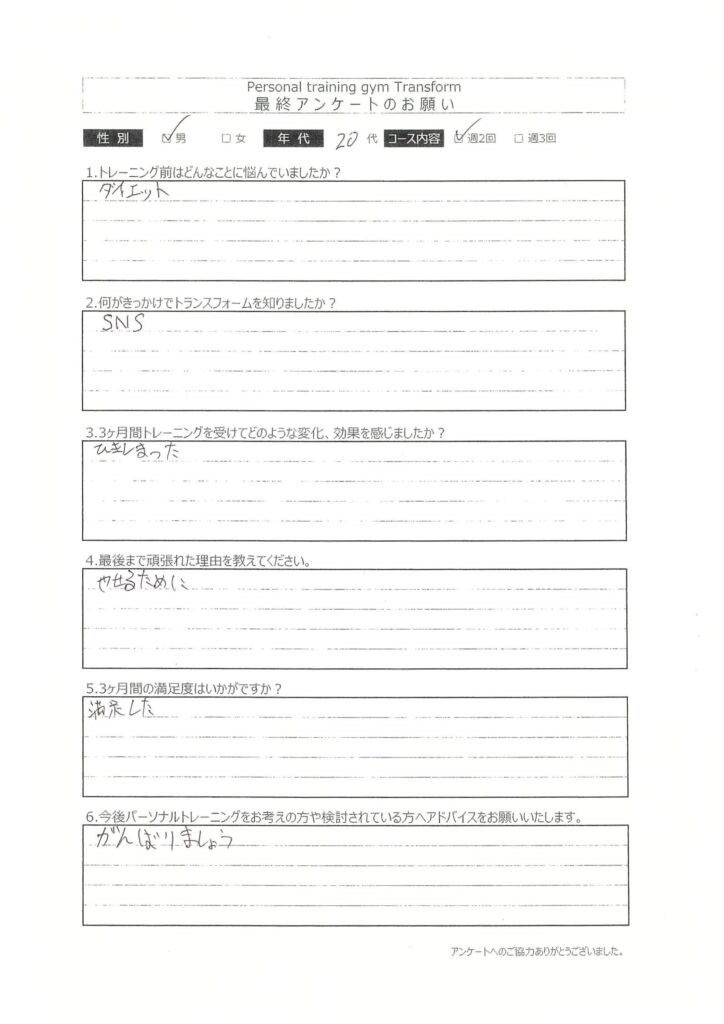 Personal training gym Transform
最終アンケートのお願い
性別 ☑男 □女 年代 20代 コース内容 ☑週2回 □週3回
1.トレーニング前はどんなことに悩んでいましたか？
ダイエット
2.何がきっかけでトランスフォームを知りましたか？
SNS
3.3ヶ月間トレーニングを受けてどのような変化、効果を感じましたか？
ひきしまった
4.最後まで頑張れた理由を教えてください。
やせるために
5.3ヶ月間の満足度はいかがですか？
満足した
6.今後パーソナルトレーニングをお考えの方や検討されている方へアドバイスをお願いいたします。
がんばりましょう
アンケートへのご協力ありがとうございました。